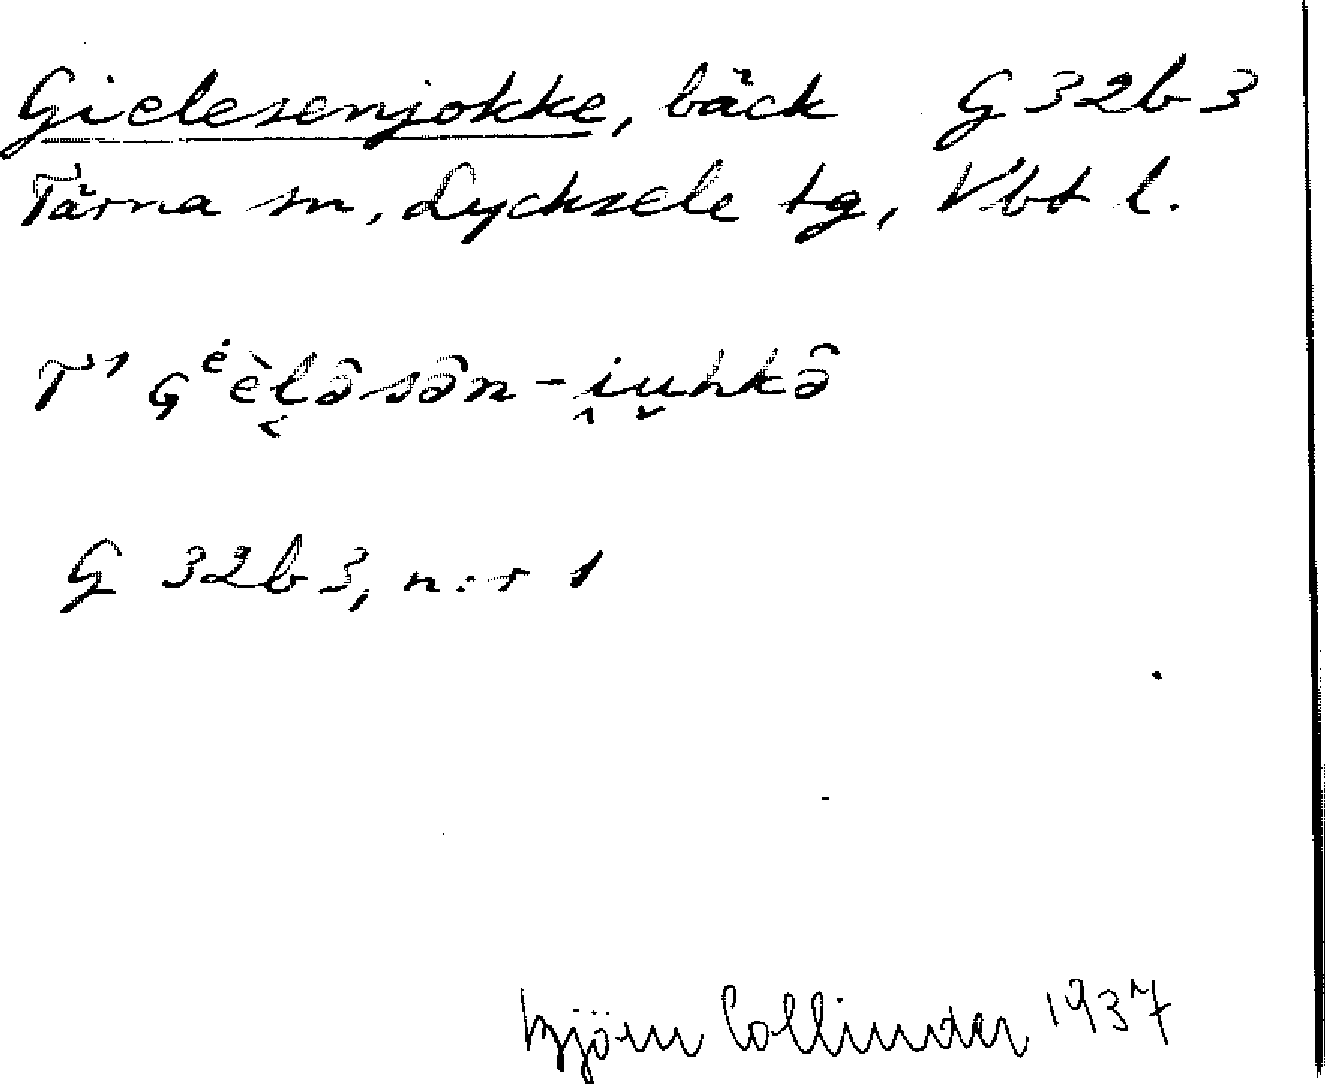 Gielesenjokke, bäck G 32b3
Tärna sn, Lycksele tg, Vbt l.
T¹ Gᵉ̇èl͔ə̂sə̂n-i̭u̬hkə̂
G 32b3, n:r 1
Björn Collinder 1937